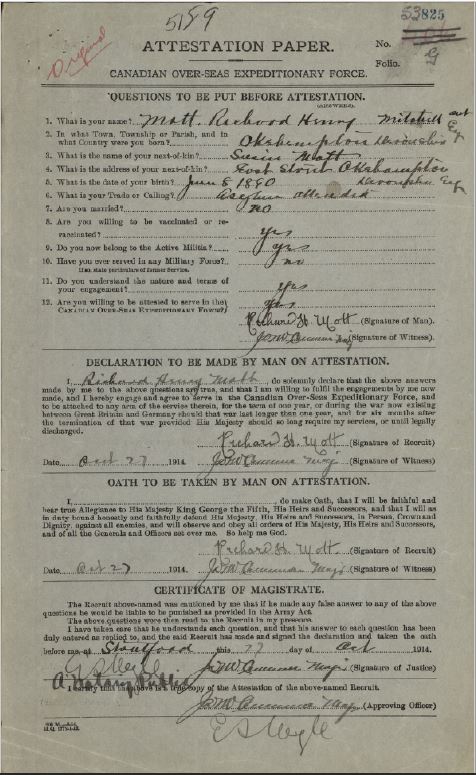 5189
Original
ATTESTATION PAPER.
No. 53825
Folio.
CANADIAN OVER-SEAS EXPEDITIONARY FORCE.
QUESTIONS TO BE PUT BEFORE ATTESTATION.
(ANSWERS).
1. What is your name? Mott Richard Henry Mitchell
2. In what Town, Township or Parish, and in what Country were you born? Okehampton Devonshire Eng
3. What is the name of your next-of-kin? Susie Mott
4. What is the address of your next-of-kin? East Street Okehampton Devonshire Eng
5. What is the date of your birth? June 8 1890
6. What is your Trade or Calling? Asylum attendant
7. Are you married? no
8. Are you willing to be vaccinated or re-vaccinated? yes
9. Do you now belong to the Active Militia? yes
10. Have you ever served in any Military Force? no
If so, state particulars of former Service.
11. Do you understand the nature and terms of your engagement? yes
12. Are you willing to be attested to serve in the CANADIAN OVER-SEAS EXPEDITIONARY FORCE? yes
Richard H. Mott (Signature of Man).
(Signature of Witness)
DECLARATION TO BE MADE BY MAN ON ATTESTATION.
I, Richard Henry Mott, do solemnly declare that the above answers
made by me to the above questions are true, and that I am willing to fulfil the engagements by me now
made, and I hereby engage and agree to serve in the Canadian Over-Seas Expeditionary Force, and
to be attached to any arm of the service therein, for the term of one year, or during the war now existing
between Great Britain and Germany should that war last longer than one year, and for six months after
the termination of that war provided His Majesty should so long require my services, or until legally
discharged.
Richard H. Mott (Signature of Recruit)
Date Oct 27 1914. (Signature of Witness)
OATH TO BE TAKEN BY MAN ON ATTESTATION.
I, , do make Oath, that I will be faithful and
bear true Allegiance to His Majesty King George the Fifth, His Heirs and Successors, and that I will as
in duty bound honestly and faithfully defend His Majesty, His Heirs and Successors, in Person, Crown and
Dignity, against all enemies, and will observe and obey all orders of His Majesty, His Heirs and Successors,
and of all the Generals and Officers set over me. So help me God.
Richard H. Mott (Signature of Recruit)
Date Oct 27 1914. (Signature of Witness)
CERTIFICATE OF MAGISTRATE.
The Recruit above-named was cautioned by me that if he made any false answer to any of the above
questions he would be liable to be punished as provided in the Army Act.
The above questions were then read to the Recruit in my presence.
I have taken care that he understands each question, and that his answer to each question has been
duly entered as replied to, and the said Recruit has made and signed the declaration and taken the oath
before me, at this 27 day of Oct 1914.
(Signature of Justice)
A Notary Public
I certify that the above is a true copy of the Attestation of the above-named Recruit.
(Approving Officer)